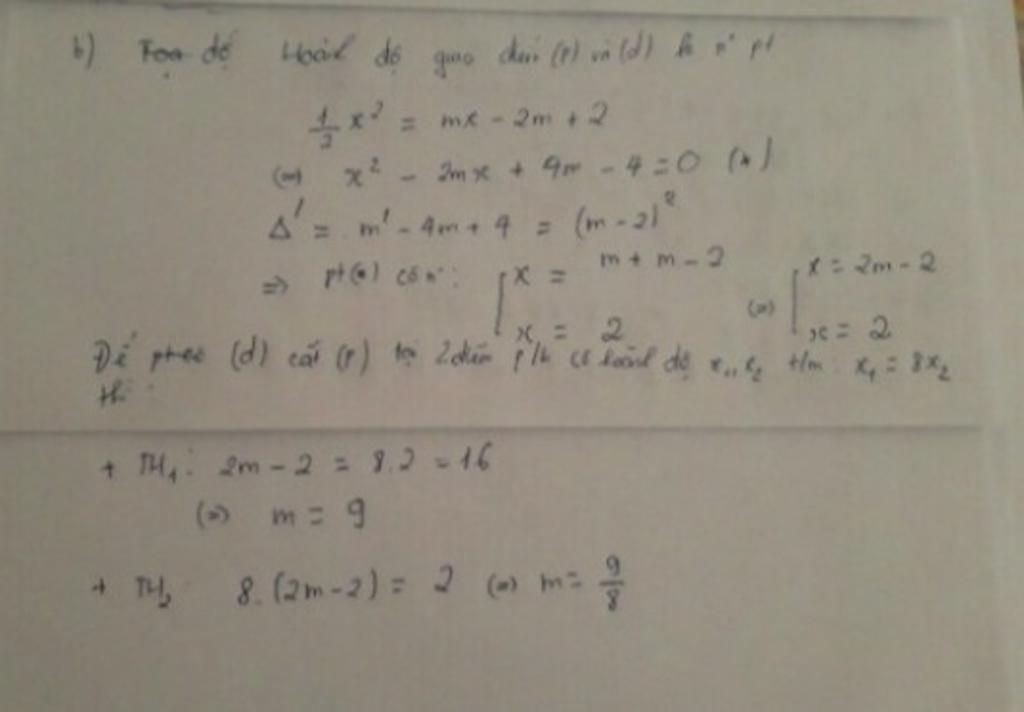 b) Tọa độ Hoành độ giao điểm (P) và (d) là n° pt
1/2 x² = mx - 2m + 2
(=) x² - 2mx + 4m - 4 = 0 (*)
Δ' = m² - 4m + 4 = (m - 2)²
=> pt(*) có n°: [ x = m + m - 2 (=) [ x = 2m - 2
x = 2 x = 2
Để (d) cắt (P) tại 2 điểm p/b có hoành độ x₁, x₂ t/m: x₁ = 8x₂
thì:
+ TH₁: 2m - 2 = 8.2 = 16
(=) m = 9
+ TH₂ 8.(2m - 2) = 2 (=) m = 9/8